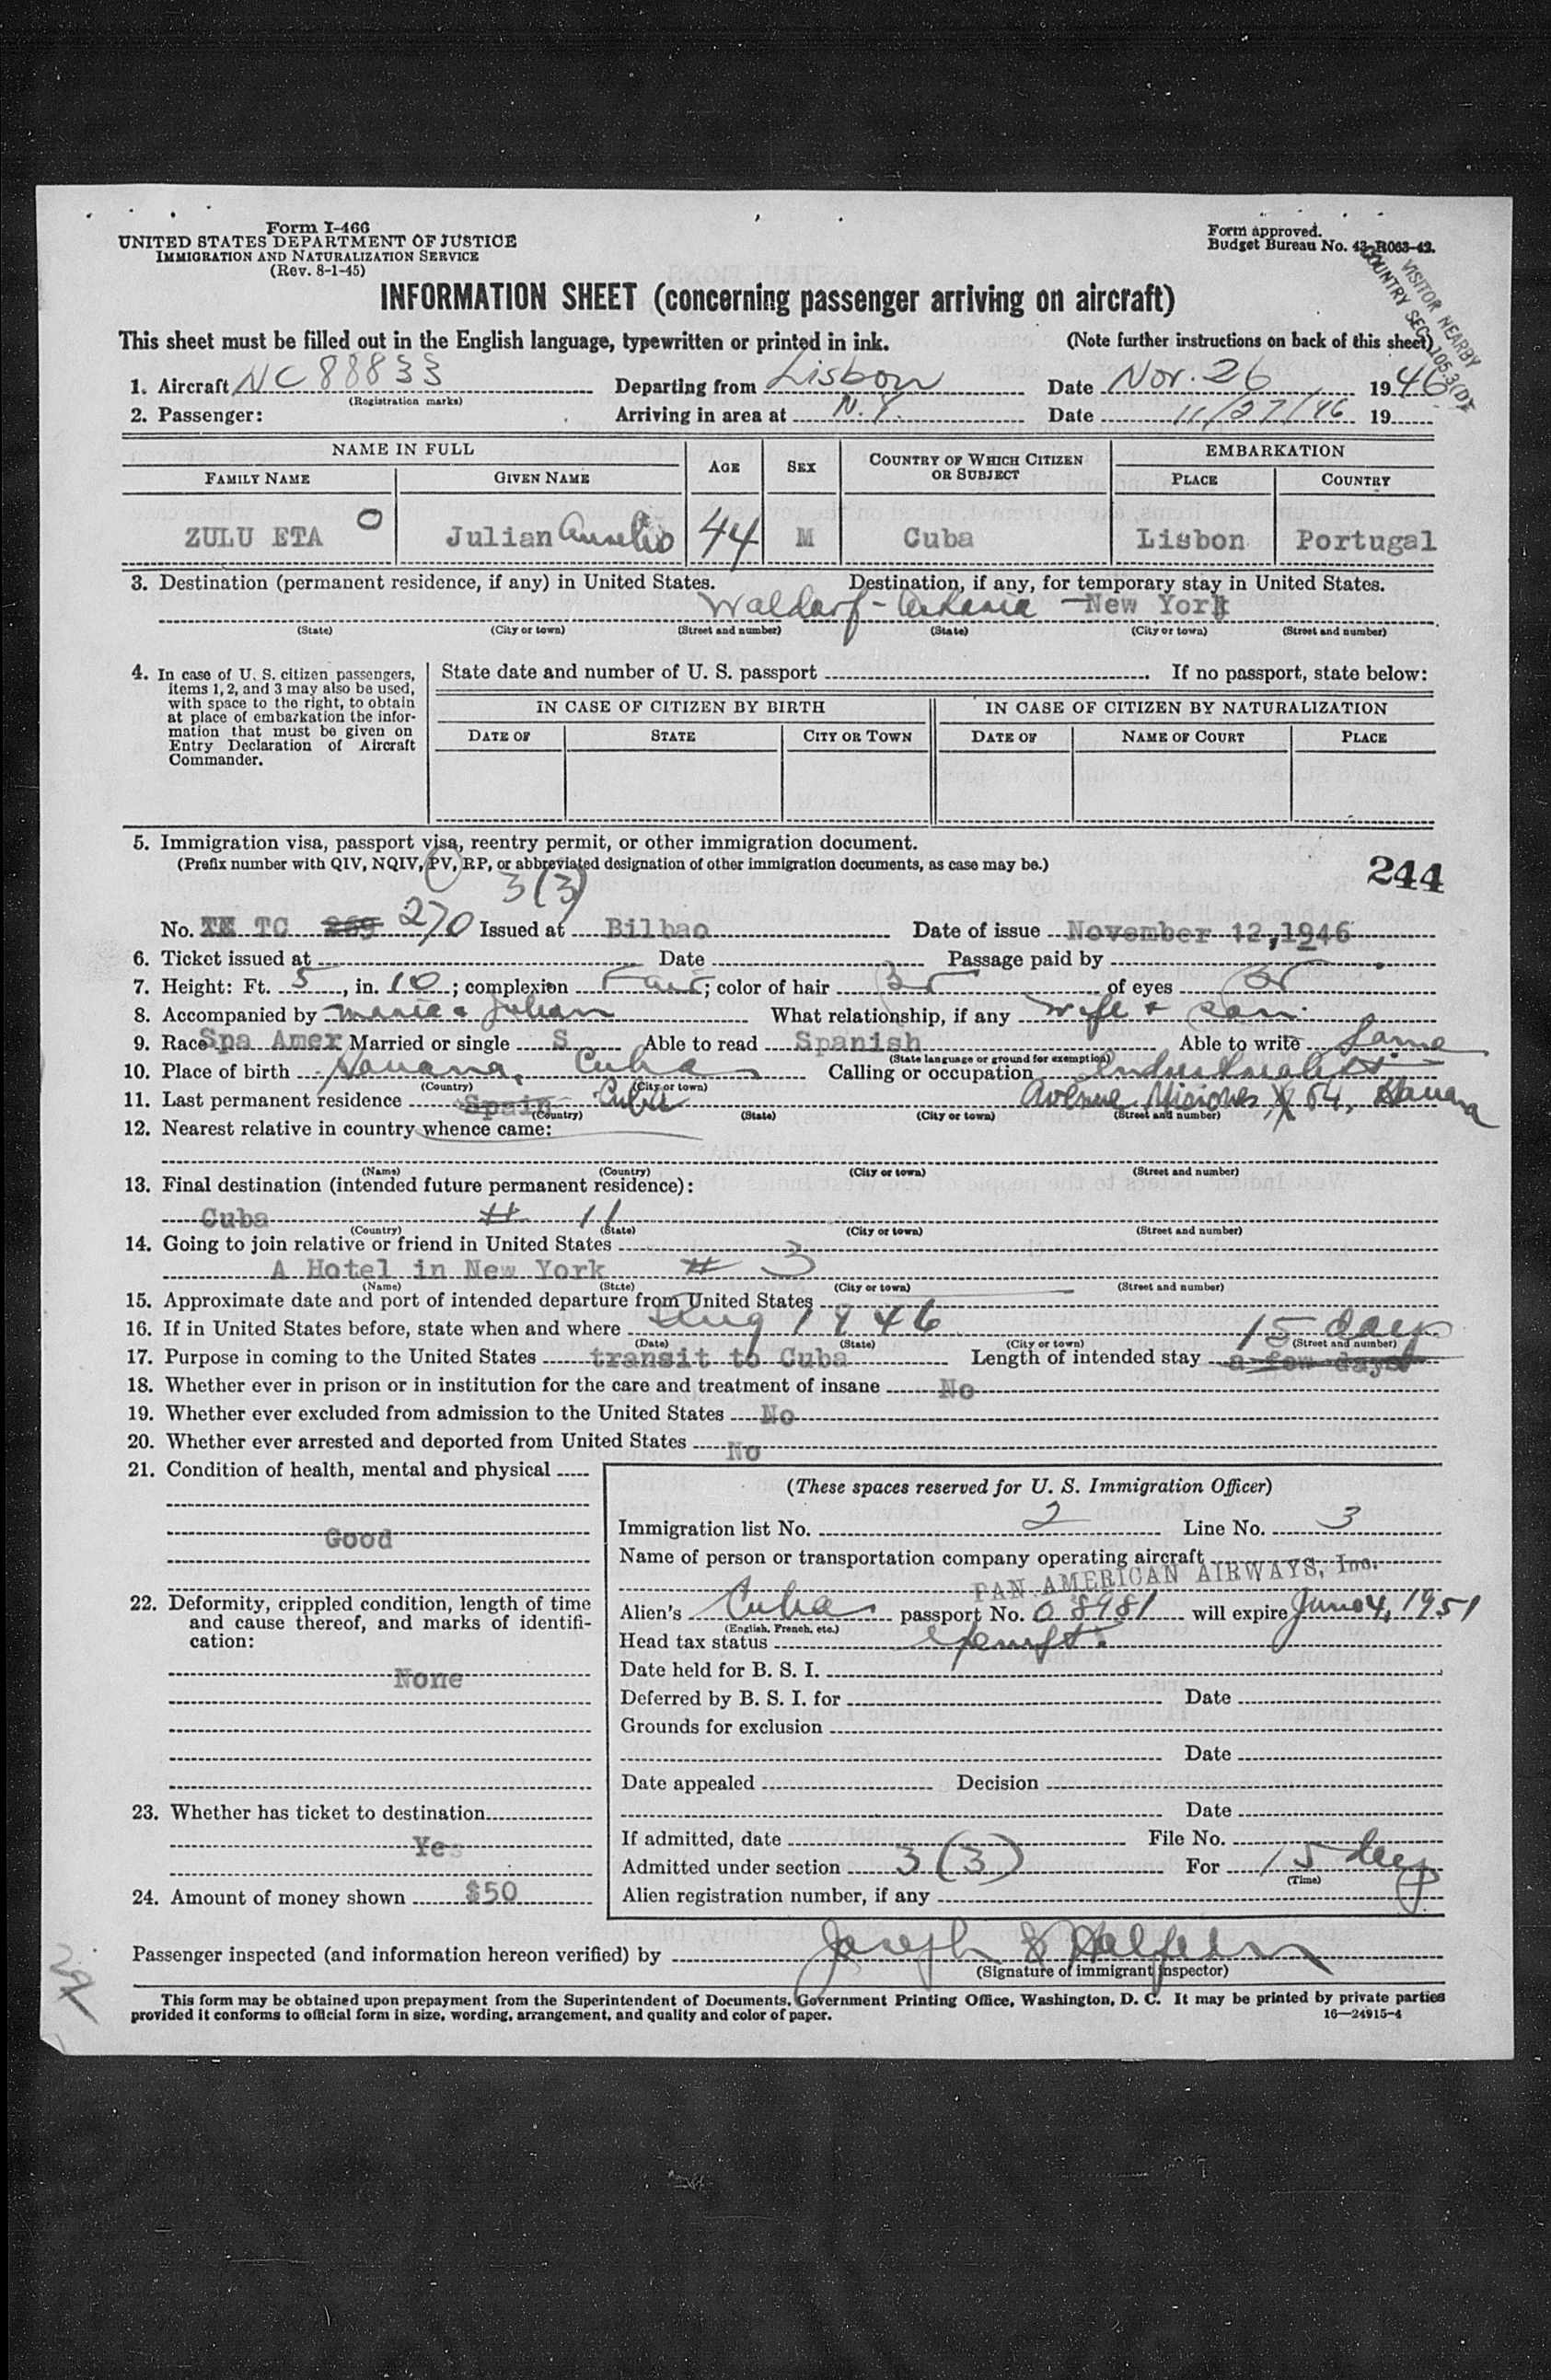 Form I-466
UNITED STATES DEPARTMENT OF JUSTICE
IMMIGRATION AND NATURALIZATION SERVICE
(Rev. 8-1-45)
Form approved.
Budget Bureau No. 43-R063-42.
VISITOR NEARBY
COUNTRY SEC. 105.3(D)
INFORMATION SHEET (concerning passenger arriving on aircraft)
This sheet must be filled out in the English language, typewritten or printed in ink. (Note further instructions on back of this sheet)
1. Aircraft NC 88833 Departing from Lisbon Date Nov. 26 1946
(Registration marks)
2. Passenger: Arriving in area at N.Y. Date 11/27/46 19
NAME IN FULL AGE SEX COUNTRY OF WHICH CITIZEN OR SUBJECT EMBARKATION
FAMILY NAME GIVEN NAME PLACE COUNTRY
ZULU ETA O Julian Aurelio 44 M Cuba Lisbon Portugal
3. Destination (permanent residence, if any) in United States. Destination, if any, for temporary stay in United States.
Waldorf-Astoria - New York
(State) (City or town) (Street and number) (State) (City or town) (Street and number)
4. In case of U. S. citizen passengers, items 1, 2, and 3 may also be used, with space to the right, to obtain at place of embarkation the information that must be given on Entry Declaration of Aircraft Commander.
State date and number of U. S. passport If no passport, state below:
IN CASE OF CITIZEN BY BIRTH IN CASE OF CITIZEN BY NATURALIZATION
DATE OF STATE CITY OR TOWN DATE OF NAME OF COURT PLACE
5. Immigration visa, passport visa, reentry permit, or other immigration document.
(Prefix number with QIV, NQIV, PV, RP, or abbreviated designation of other immigration documents, as case may be.)
244
3(3)
No. TC 269 270 Issued at Bilbao Date of issue November 12, 1946
6. Ticket issued at Date Passage paid by
7. Height: Ft. 5, in. 10; complexion Fair; color of hair Br of eyes Br
8. Accompanied by Maria & Julian What relationship, if any wife & son.
9. Race Spa Amer Married or single S Able to read Spanish Able to write Same
(State language or ground for exemption)
10. Place of birth Havana, Cuba Calling or occupation Industrialist
(Country) (City or town)
11. Last permanent residence Spain Cuba Avenue Misiones, 64, Havana
(Country) (State) (City or town) (Street and number)
12. Nearest relative in country whence came:
(Name) (Country) (City or town) (Street and number)
13. Final destination (intended future permanent residence):
Cuba # 11
(Country) (State) (City or town) (Street and number)
14. Going to join relative or friend in United States
A Hotel in New York # 3
(Name) (State) (City or town) (Street and number)
15. Approximate date and port of intended departure from United States
16. If in United States before, state when and where Aug 1946 15 days
(Date) (State) (City or town) (Street and number)
17. Purpose in coming to the United States transit to Cuba Length of intended stay a few days
18. Whether ever in prison or in institution for the care and treatment of insane No
19. Whether ever excluded from admission to the United States No
20. Whether ever arrested and deported from United States No
21. Condition of health, mental and physical
Good
22. Deformity, crippled condition, length of time and cause thereof, and marks of identification:
None
23. Whether has ticket to destination
Yes
24. Amount of money shown $50
(These spaces reserved for U. S. Immigration Officer)
Immigration list No. 2 Line No. 3
Name of person or transportation company operating aircraft
PAN AMERICAN AIRWAYS, Inc.
Alien's Cuba passport No. 08981 will expire June 4, 1951
(English, French, etc.)
Head tax status exempt.
Date held for B. S. I.
Deferred by B. S. I. for Date
Grounds for exclusion
Date
Date appealed Decision
Date
If admitted, date File No.
Admitted under section 3(3) For 15 days
(Time)
Alien registration number, if any
Passenger inspected (and information hereon verified) by Joseph
(Signature of immigrant inspector)
This form may be obtained upon prepayment from the Superintendent of Documents, Government Printing Office, Washington, D. C. It may be printed by private parties
provided it conforms to official form in size, wording, arrangement, and quality and color of paper. 16—24915-4